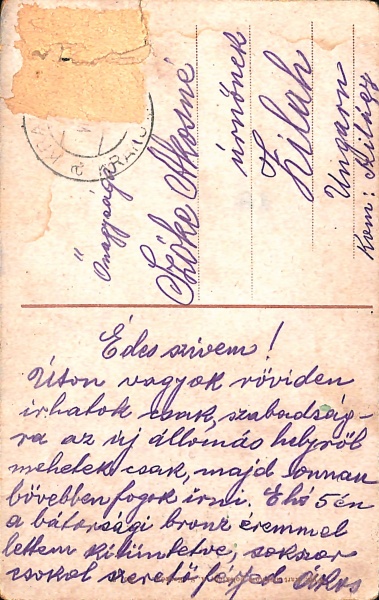 Ő nagysága
Szőke Ákosné
úrnőnek
Zilah
Ungarn
Kom: Szilágy
Édes szivem!
Úton vagyok röviden
irhatok csak, szabadság-
ra az új állomás helyről
mehetek csak, majd onnan
bővebben fogok irni. E hó 5 én
a bátorsági bronz éremmel
lettem kitüntetve, sokszor
csokol szerető férjed Ákos